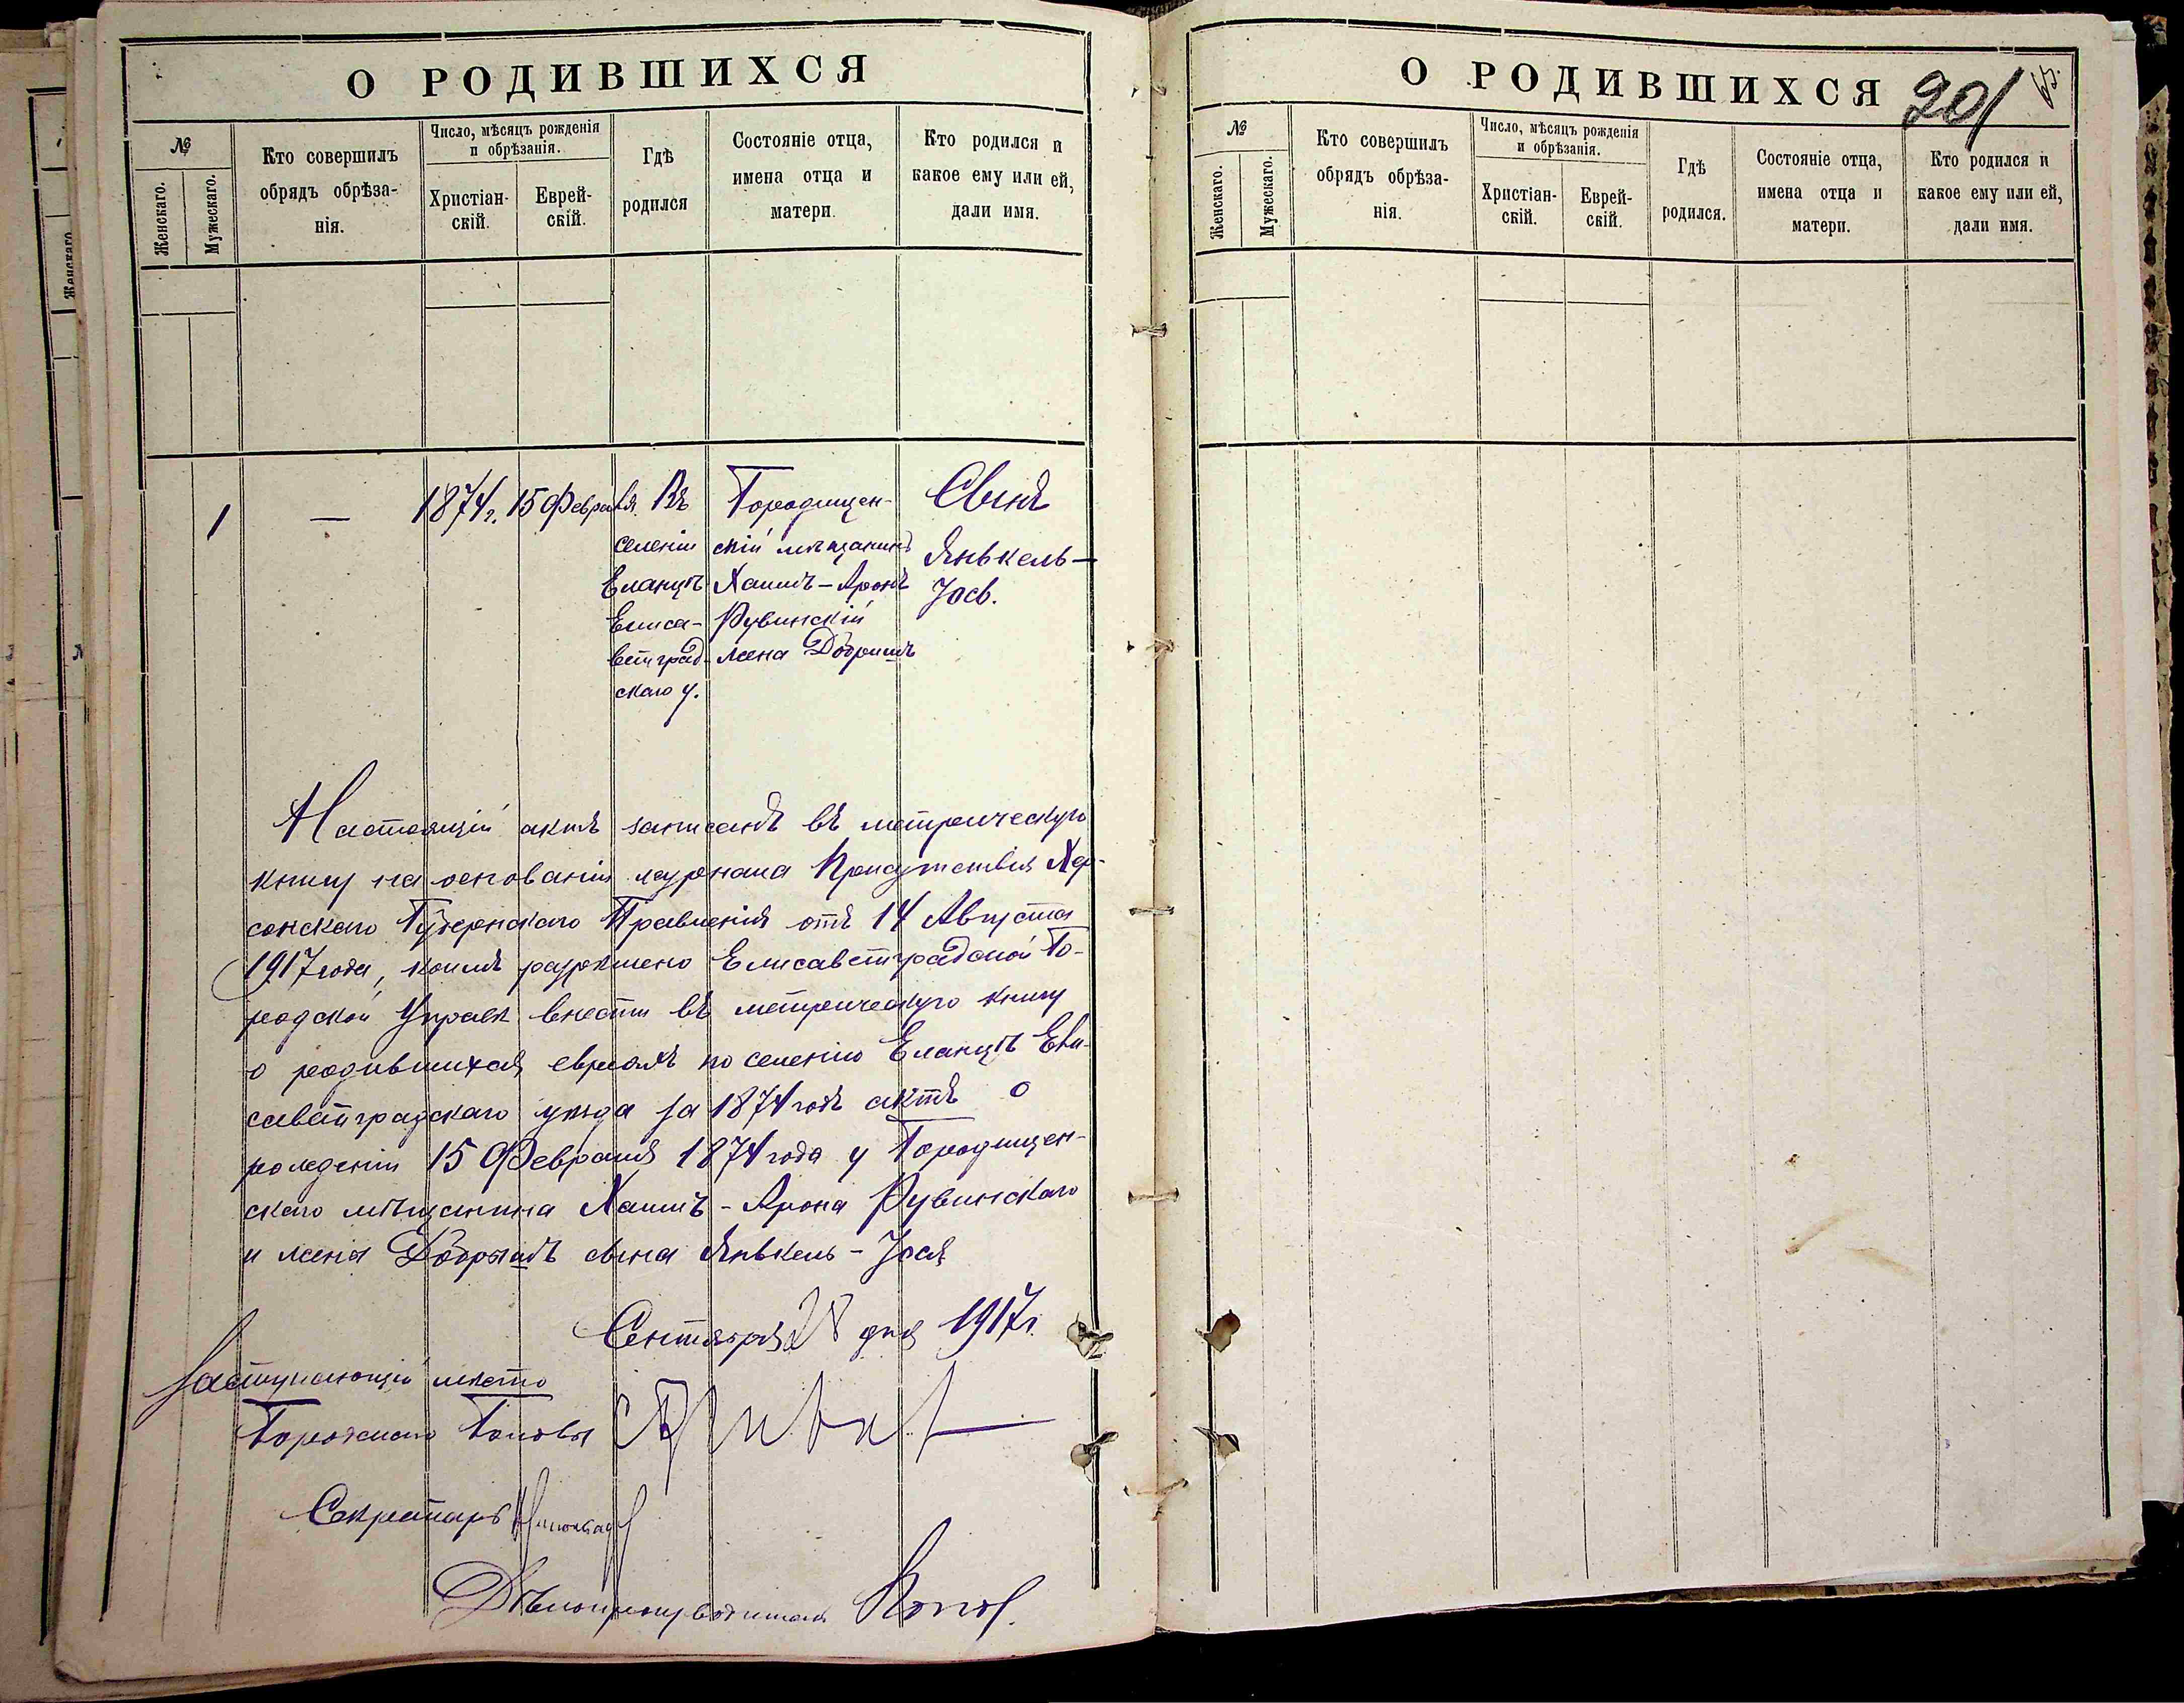 О РОДИВШИХСЯ
№
Женскаго.
Мужескаго.
Кто совершилъ
обрядъ обрѣза-
нія.
Число, мѣсяцъ рожденія
и обрѣзанія.
Христіан-
скій.
Еврей-
скій.
Гдѣ
родился
Состояніе отца,
имена отца и
матери.
Кто родился и
какое ему или ей,
дали имя.
1 — 1874 г. 15 Февраля. Въ Городищен- Сынъ
селеніи скій мѣщанинъ Янкель-
Еланцѣ Хаимъ-Аронъ Іосъ.
Елиса- Рувинскій
ветград- жена Добрышъ
скаго у.
Настоящій актъ записанъ въ метрическую
книгу на основаніи журнала Присутствія Хер-
сонскаго Губернскаго Правленія отъ 14 Августа
1917 года, коимъ разрѣшено Елисаветградской Го-
родской Управѣ внести въ метрическую книгу
о родившихся евреяхъ по селенію Еланцѣ Ели-
саветградскаго уѣзда за 1874 годъ актъ о
рожденіи 15 Февраля 1874 года у Городищен-
скаго мѣщанина Хаимъ-Арона Рувинскаго
и жены Добрышъ сына Янкель-Іося
Сентября 28 дня 1917 г.
Заступающій мѣсто
Городского Головы
Секретарь
Дѣлопроизводитель
О РОДИВШИХСЯ
201
65.
№
Женскаго.
Мужескаго.
Кто совершилъ
обрядъ обрѣза-
нія.
Число, мѣсяцъ рожденія
и обрѣзанія.
Христіан-
скій.
Еврей-
скій.
Гдѣ
родился.
Состояніе отца,
имена отца и
матери.
Кто родился и
какое ему или ей,
дали имя.